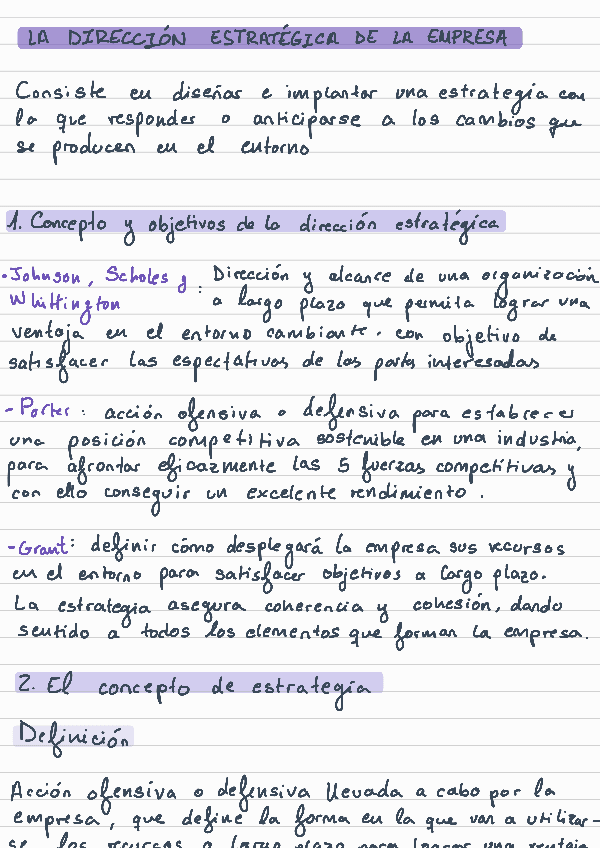 LA DIRECCIÓN ESTRATÉGICA DE LA EMPRESA
Consiste en diseñar e implantar una estrategia con
la que responder o anticiparse a los cambios que
se producen en el entorno
1. Concepto y objetivos de la dirección estratégica
- Johnson, Scholes y Whittington : Dirección y alcance de una organización
a largo plazo que permita lograr una
ventaja en el entorno cambiante. con objetivo de
satisfacer las espectativas de las partes interesadas
- Porter : acción ofensiva o defensiva para establecer
una posición competitiva sostenible en una industria,
para afrontar eficazmente las 5 fuerzas competitivas y
con ello conseguir un excelente rendimiento .
- Grant : definir cómo desplegará la empresa sus recursos
en el entorno para satisfacer objetivos a largo plazo.
La estrategia asegura coherencia y cohesión, dando
sentido a todos los elementos que forman la empresa.
2. El concepto de estrategia
Definición
Acción ofensiva o defensiva llevada a cabo por la
empresa, que define la forma en la que van a utilizar-
se los recursos a largo plazo para lograr una ventaja